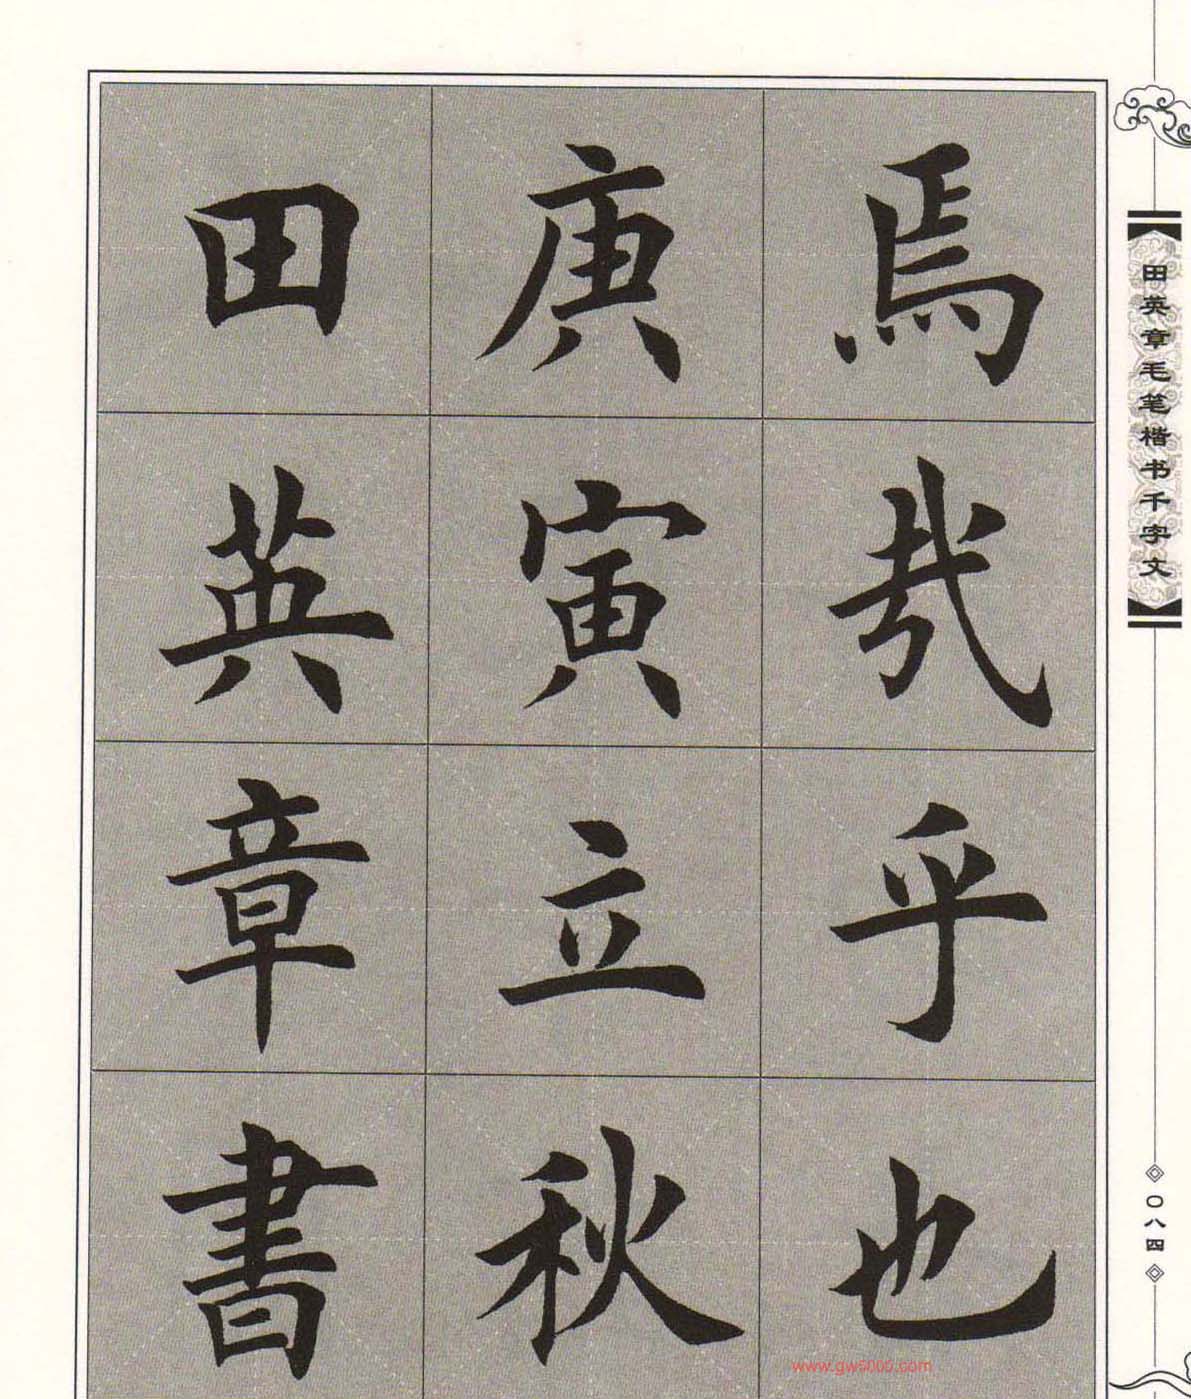 焉哉乎也
庚寅立秋
田英章書
田英章毛笔楷书千字文
〇八四
www.gw5000.com